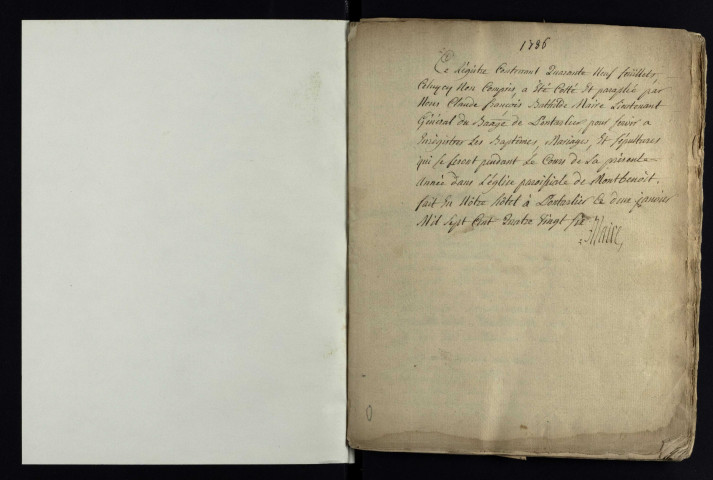 1786
Ce Régistre Contenant Quarante Neuf feüillets,
Celuycy Non Compris, a été Cotté Et paraphé par
Nous Claude françois Bathilde Maire Lieutenant
Général du Baage de Pontarlier pour servir a
Enregistrer Les Baptêmes, Mariages, Et sépultures
qui se feront pendant Le Cours de La présente
année dans L'église paroissiale de Montbenoit.
fait En Nôtre hôtel à Pontarlier Le deux janvier
Mil Sept Cent Quatre Vingt six
Maire,